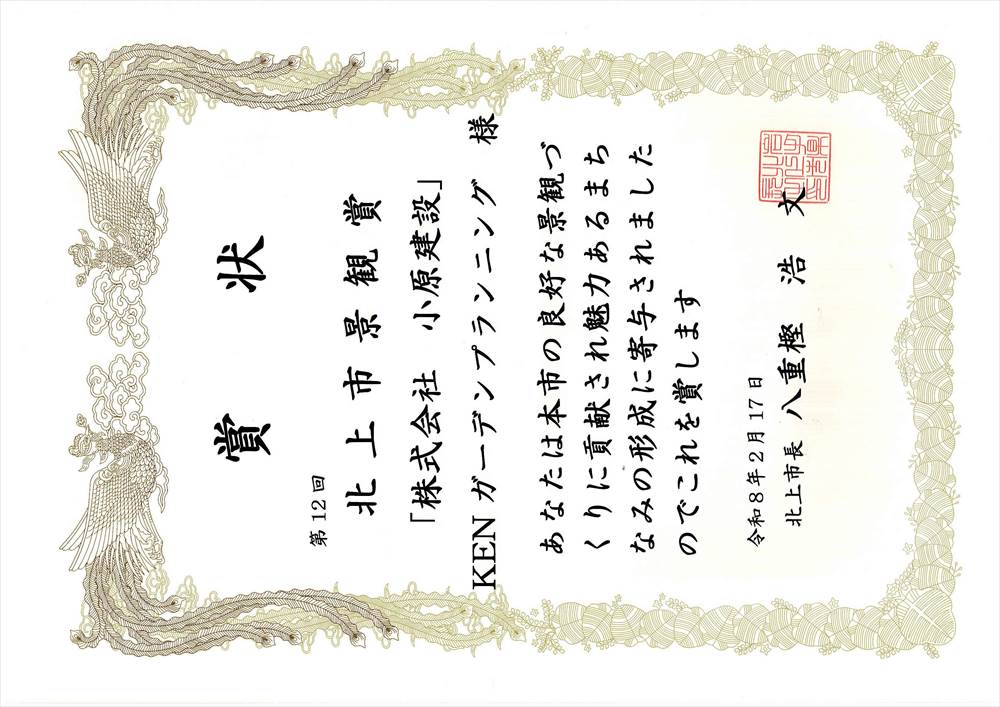 賞状
第12回
北上市景観賞
「株式会社 小原建設」
KENガーデンプランニング 様
あなたは本市の良好な景観づ
くりに貢献され魅力あるまち
なみの形成に寄与されました
のでこれを賞します
令和8年2月17日
北上市長 八重樫 浩 文